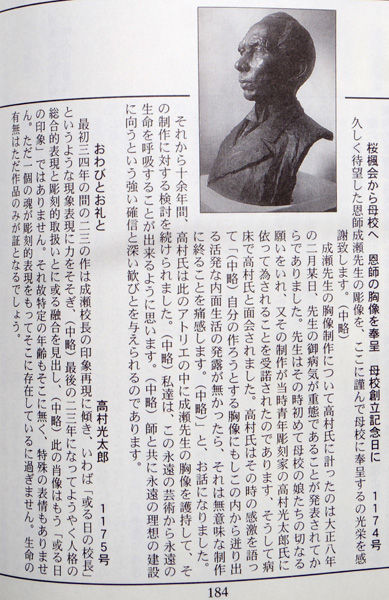 桜楓会から母校へ 恩師の胸像を奉呈 母校創立記念日に １１７４号
久しく待望した恩師成瀬先生の彫像を、ここに謹んで母校に奉呈するの光栄を感
謝致します。(中略)
成瀬先生の胸像制作について高村氏に計ったのは大正八年
の二月某日、先生の御病気が重態であることが発表されてか
らでありました。先生はその時初めて母校の娘たちの切なる
願いをいれ、又その制作が当時青年彫刻家の高村光太郎氏に
依って為されることを受諾されたのであります。そうして病
床で高村氏と面会されました。高村氏はその時の感激を語っ
て「(中略)自分の作ろうとする胸像にもしこの内から迸り出
る活発な内面生活の発露が無かったら、それは無意味な制作
に終ることを痛感します。(中略)」と、お話になりました。
それから十余年間、高村氏は此のアトリエの中に成瀬先生の胸像を擁護して、そ
の制作に対する検討を続けられました。(中略)私達は、この永遠の芸術から永遠の
生命を呼吸することが出来るように思います。(中略)師と共に永遠の理想の建設
に向うという強い確信と深い歓びとを与えられるのであります。
おわびとお礼と 高村光太郎 １１７５号
最初三四年の間の二三の作は成瀬校長の印象再現に傾き、いわば「或る日の校長」
というような現象表現に力をそそぎ、(中略)最後の二三年になってようやく人格の
総合的表現と彫刻的取扱いとに或る融合を見出し、(中略)此の肖像はもう「或る日
の印象」ではありません。それ故特定の年齢もそこに無く、特殊の表情もありませ
ん。ただ一個の魂が彫刻的表現をもってそこに存在しているに過ぎません。生命の
有無はただ作品のみが証となるでしょう。
184